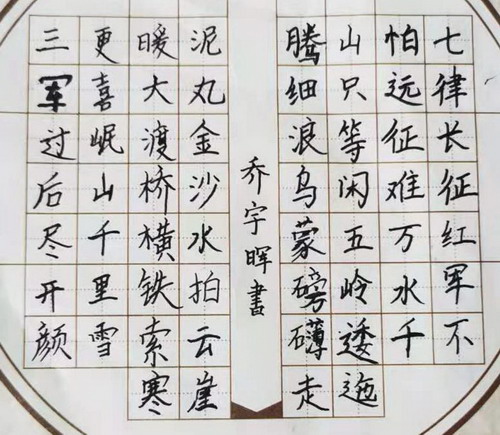 七律长征红军不
怕远征难万水千
山只等闲五岭逶迤
腾细浪乌蒙磅礴走
泥丸金沙水拍云崖
暖大渡桥横铁索寒
更喜岷山千里雪
三军过后尽开颜
乔宇晖書